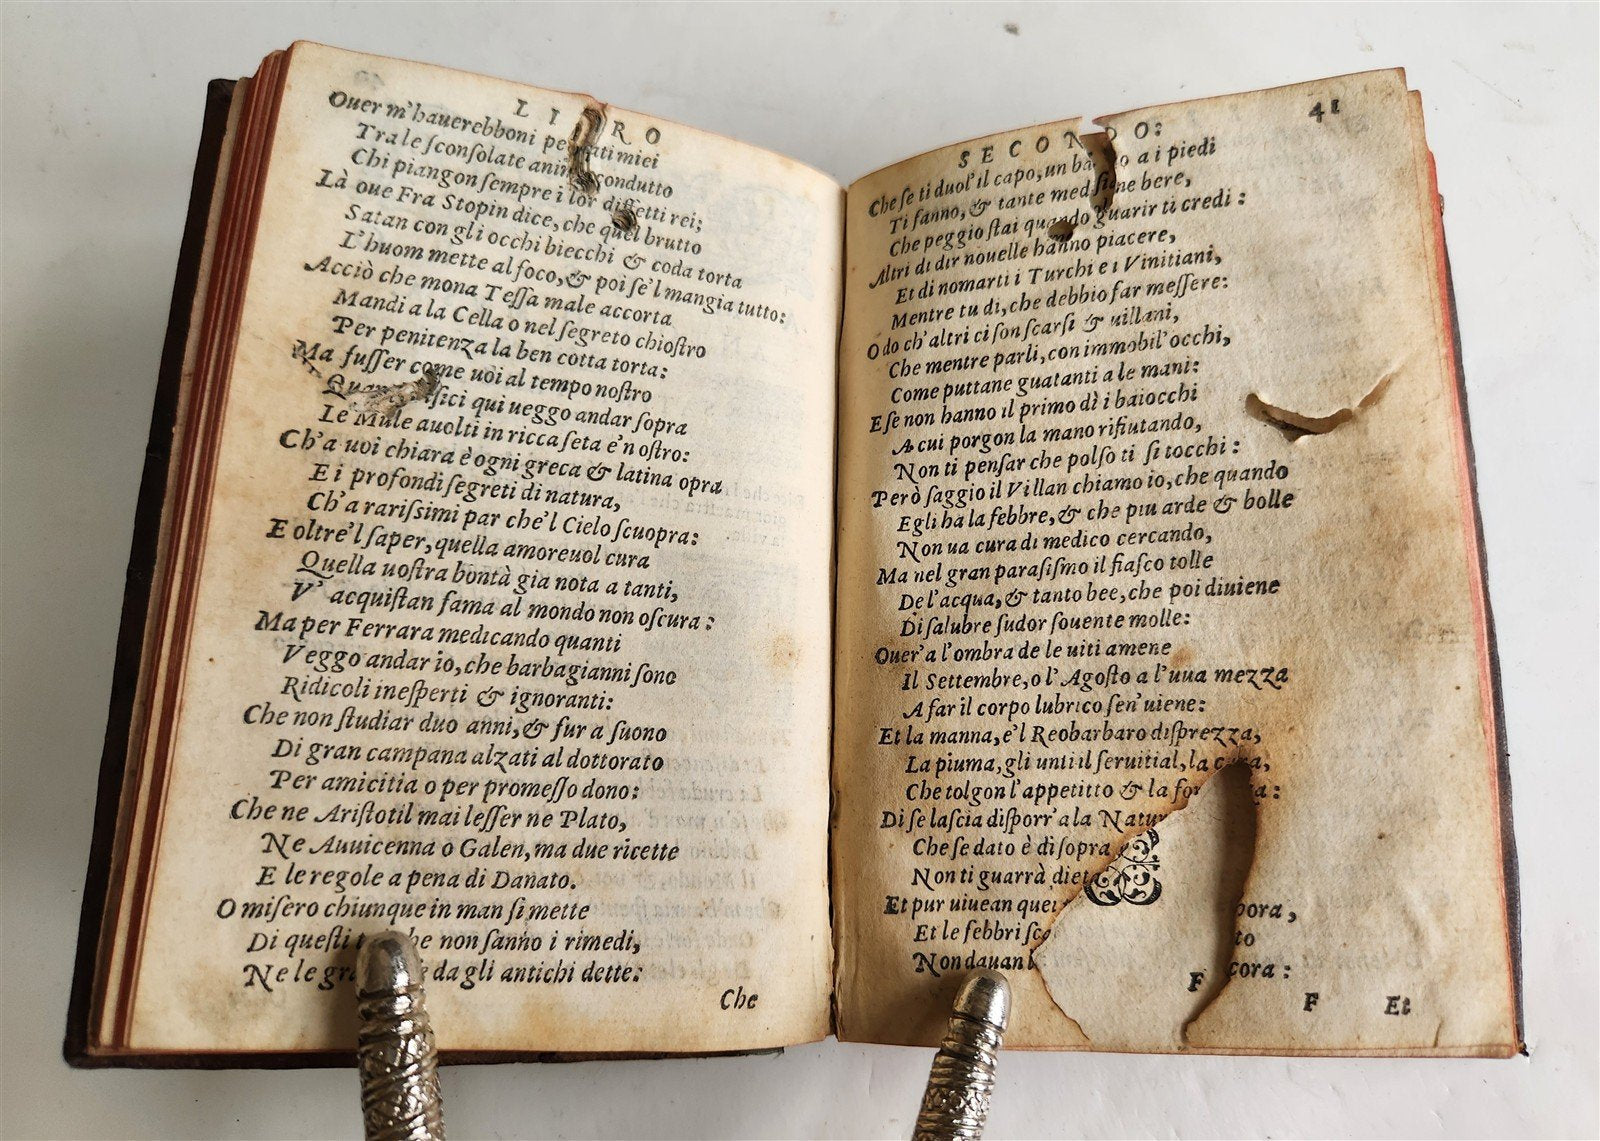 LI RO
Ouer m'hauerebboni pe ati miei
Tra le ſconſolate anim condutto
Chi piangon ſempre i lor diffetti rei;
Là oue Fra Stopin dice, che quel brutto
Satan con gli occhi biecchi & coda torta
L'huom mette al foco, & poi ſe'l mangia tutto:
Acciò che mona Teſſa male accorta
Mandi a la Cella o nel ſegreto chioſtro
Per penitenza la ben cotta torta:
Ma fuſſer come uoi al tempo noſtro
Quan iſici qui ueggo andar ſopra
Le Mule auolti in ricca ſeta e'n oſtro:
Ch'a uoi chiara è ogni greca & latina opra
E i profondi ſegreti di natura,
Ch'a rariſsimi par che'l Cielo ſcuopra:
E oltre'l ſaper, quella amoreuol cura
Quella uoſtra bontà gia nota a tanti,
V' acquiſtan fama al mondo non oſcura:
Ma per Ferrara medicando quanti
Veggo andar io, che barbagianni ſono
Ridicoli ineſperti & ignoranti:
Che non ſtudiar duo anni, & fur a ſuono
Di gran campana alzati al dottorato
Per amicitia o per promeſſo dono:
Che ne Ariſtotil mai leſſer ne Plato,
Ne Auuicenna o Galen, ma due ricette
E le regole a pena di Danato.
O miſero chiunque in man ſi mette
Di queſti t he non ſanno i rimedi,
Ne le gra e da gli antichi dette:
Che
SECONDO: 41
Che ſe ti duol' il capo, un ba o a i piedi
Ti fanno, & tante mediſine bere,
Che peggio ſtai quando guarir ti credi:
Altri di dir nouelle hanno piacere,
Et di nomarti i Turchi e i Vinitiani,
Mentre tu di, che debbio far meſſere:
O do ch'altri ci ſon ſcarſi & uillani,
Che mentre parli, con immobil'occhi,
Come puttane guatanti a le mani:
E ſe non hanno il primo dì i baiocchi
A cui porgon la mano rifiutando,
Non ti penſar che polſo ti ſi tocchi:
Però ſaggio il Villan chiamo io, che quando
Egli ha la febbre, & che piu arde & bolle
Non ua cura di medico cercando,
Ma nel gran paraſiſmo il fiaſco tolle
De l'acqua, & tanto bee, che poi diuiene
Di ſalubre ſudor ſouente molle:
Ouer'a l'ombra de le uiti amene
Il Settembre, o l'Agoſto a l'uua mezza
A far il corpo lubrico ſen' uiene:
Et la manna, e'l Reobarbaro diſprezza,
La piuma, gli unti il ſeruitial, la c a,
Che tolgon l'appetitto & la for a:
Di ſe laſcia diſporr' a la Natur
Che ſe dato è di ſopra
Non ti guarrà dieta
Et pur uiuean quei bora,
Et le febbri ſc to
Non dauan cora:
F F Et